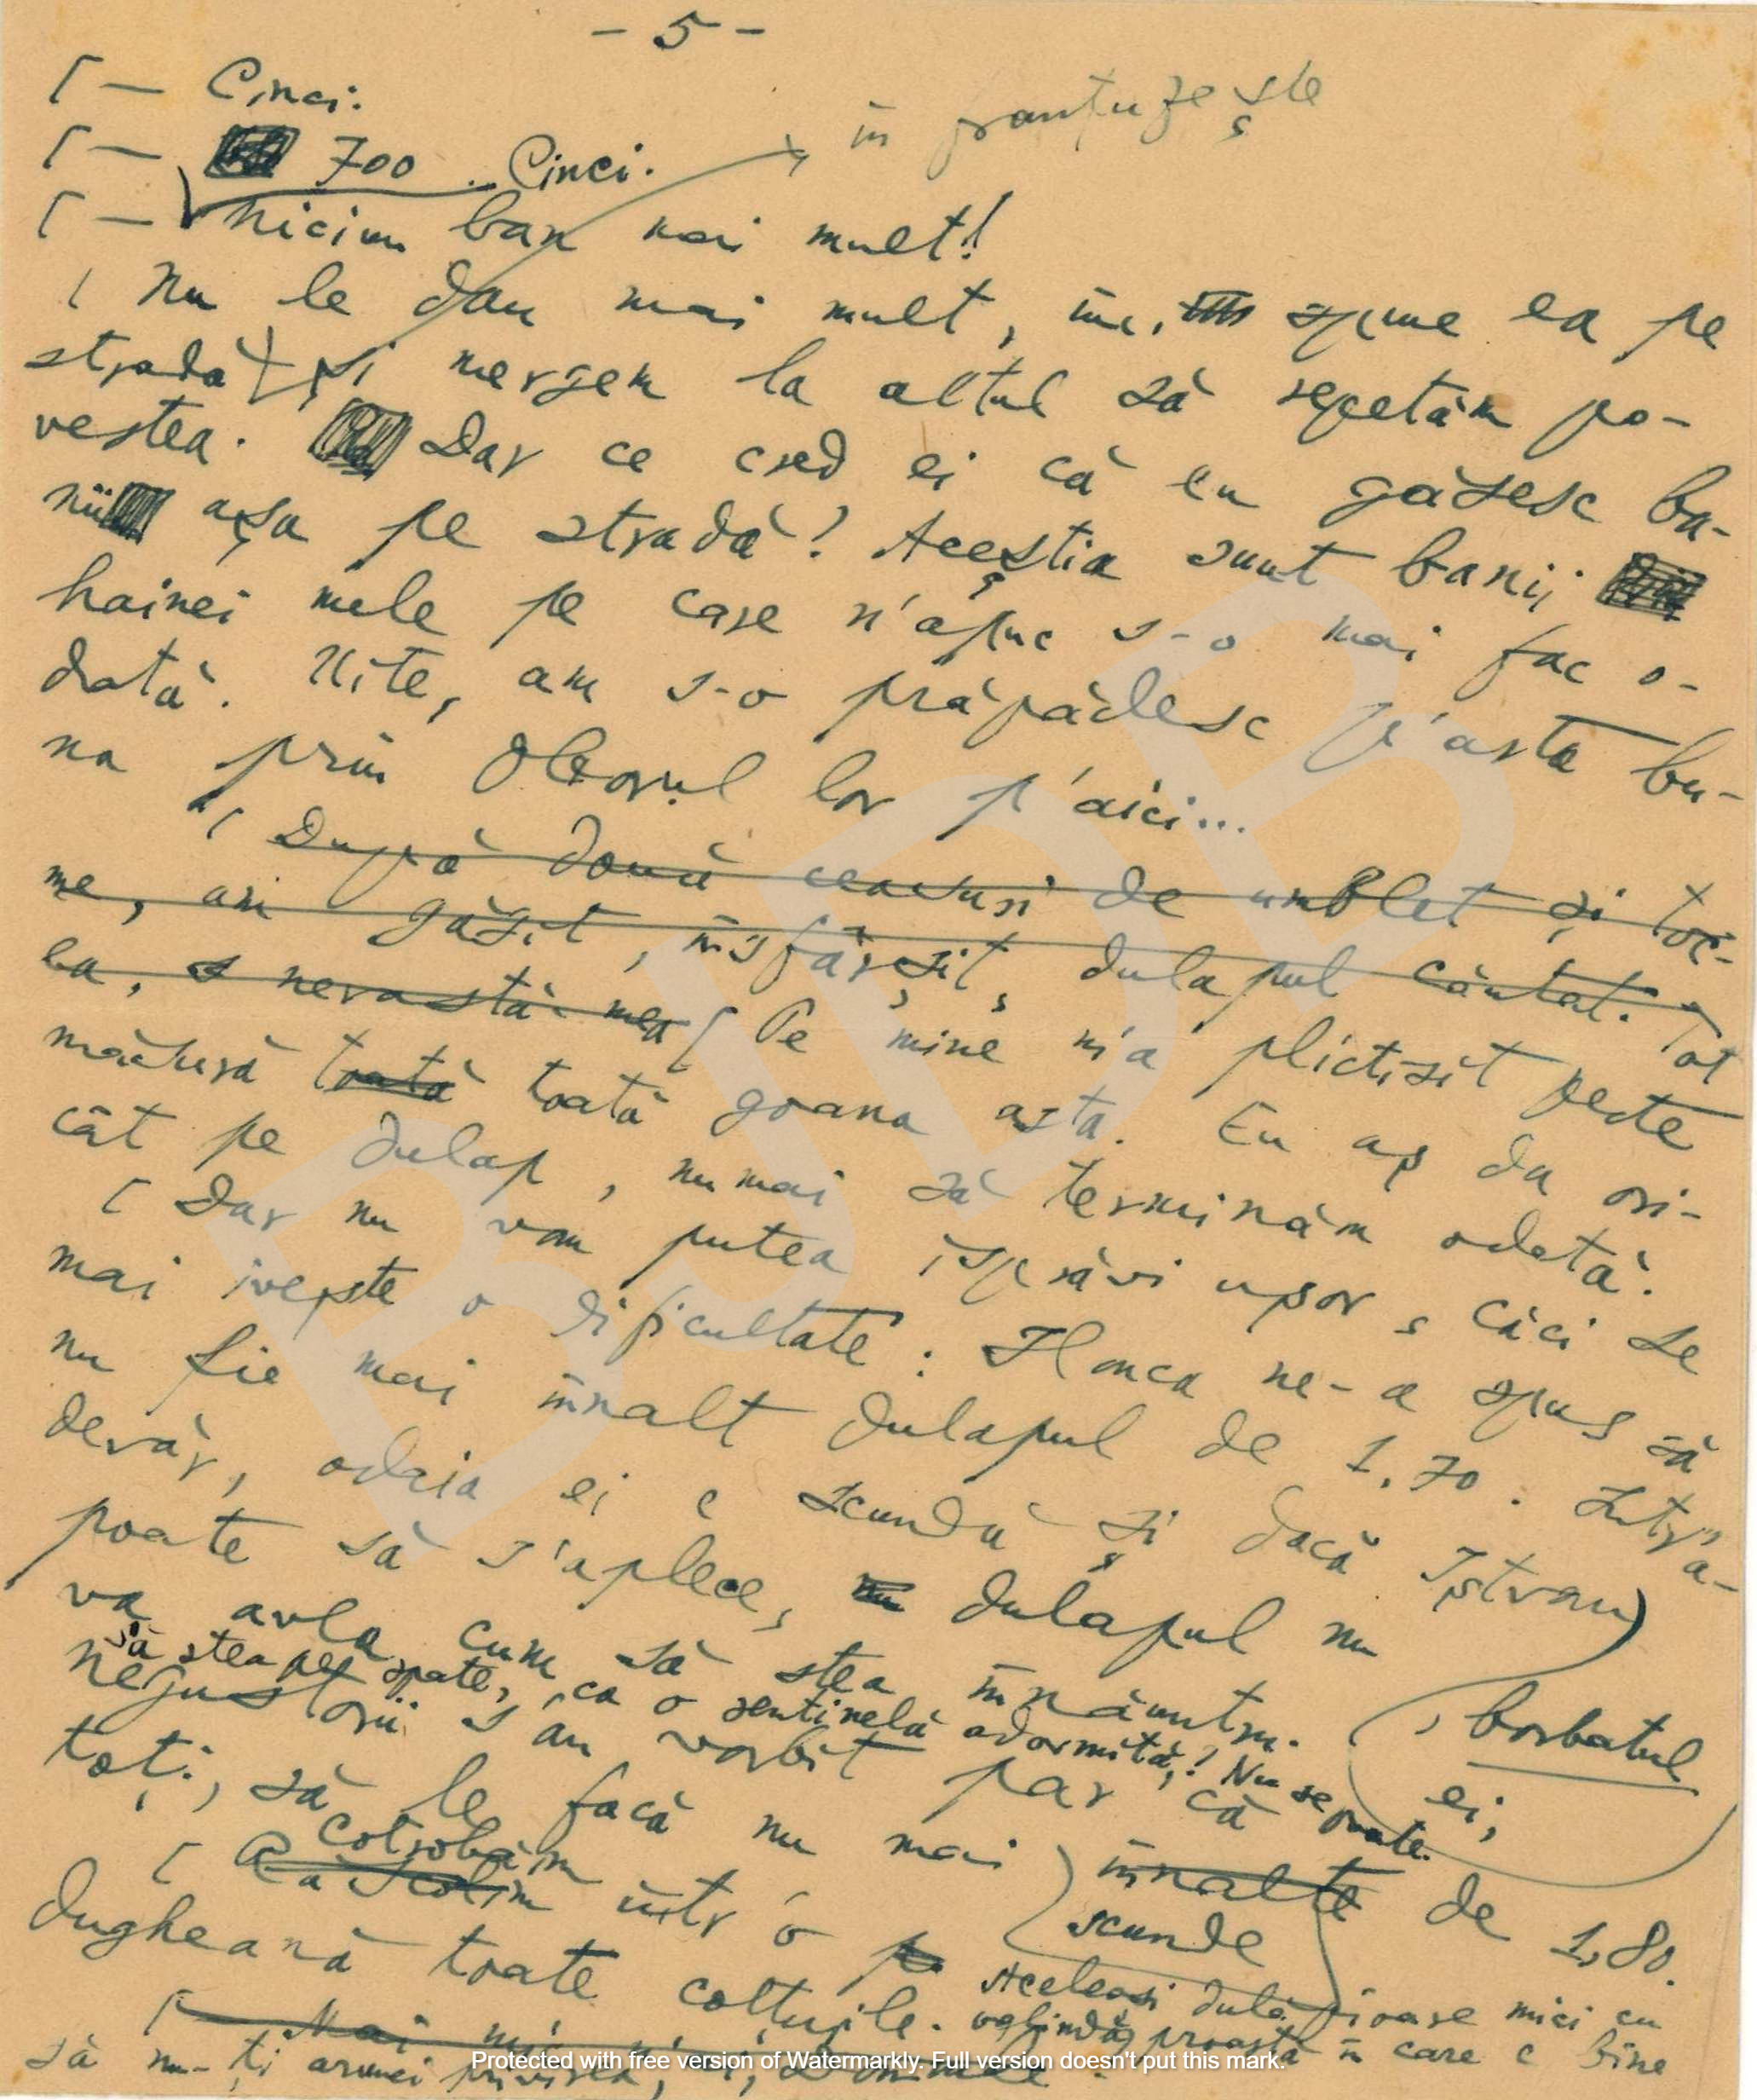 - 5 -
[ — Cinci.
în franțuzește
[ — 700 .. Cinci.
[ — niciun ban mai mult!
[ Nu le dau mai mult, îmi spune ea pe
stradă și mergem la altul să repetăm po-
vestea. Dar ce cred ei că eu găsesc ba-
nii așa pe stradă? Aceștia sunt banii
hainei mele pe care n'apuc s-o mai fac o-
dată. Uite, am s-o prăpădesc p'asta bu-
na prin oborul lor p'aici...
[ După două ceasuri de umblet și toc-
me, am găsit, însfârșit, dulapul căutat. Tot
ea, nevastă-mea [ Pe mine m'a plictisit peste
măsură toată toată goana asta. Eu aș da ori-
cât pe dulap, numai să terminăm odată.
[ Dar nu vom putea isprăvi ușor, căci se
mai ivește o dificultate: Ilonca ne-a spus să
nu fie mai înnalt dulapul de 1.70. Într'a-
devăr, odaia ei e scundă și dacă Iștvan
poate să s'aplece, nu dulapul nu
va avea cum să stea înnăuntru.
, bărbatul
ei,
să stea pe spate, ca o sentinelă adormită,! Nu se poate.
negustorii s'au vorbit par că
toți, să le facă nu mai înnalte de 1,80.
scunde
cotrobăim
[ Răscolim într'o
dugheană toate colțurile. Aceleași dulăpioare mici cu
oglindă proastă în care e bine
să nu-ți arunci privirea,
Protected with free version of Watermarkly. Full version doesn't put this mark.
BJDB